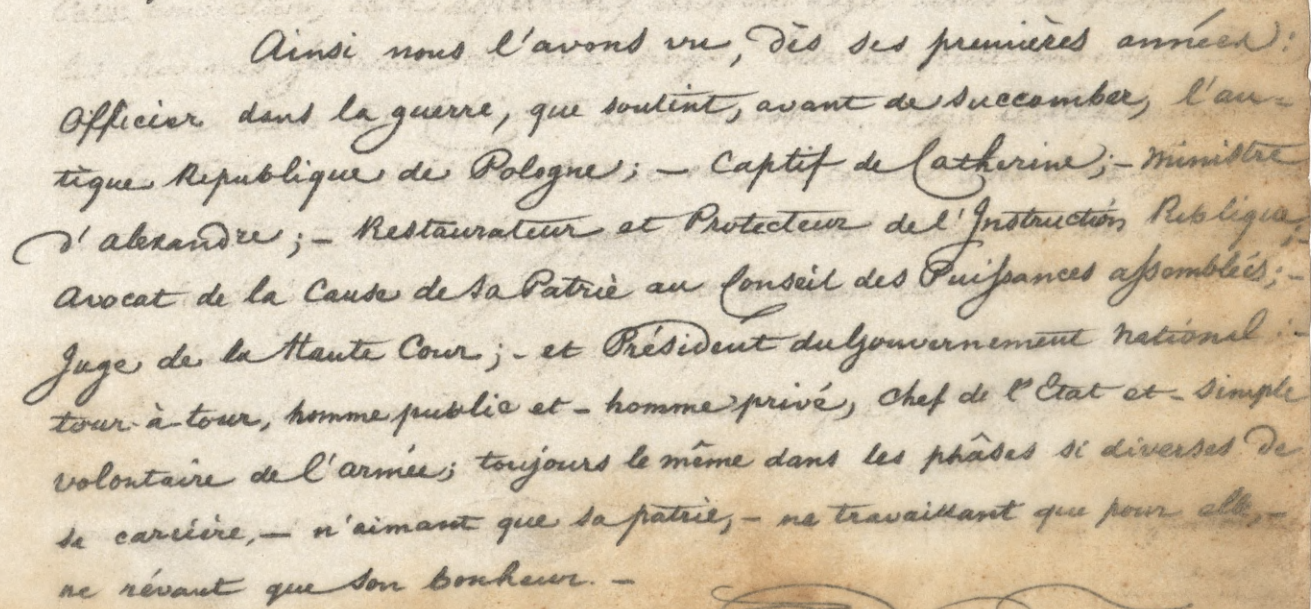 Ainsi nous l'avons vu, dès ses premières années:
Officier dans la guerre, que soutint, avant de succomber, l'an-
tique Republique de Pologne; — Captif de Catherine; — Ministre
d'Alexandre; — Restaurateur et Protecteur de l'Instruction Publique; —
Avocat de la Cause de sa Patrie au Conseil des Puissances assemblées; —
Juge de la Haute Cour; — et Président du Gouvernement National: —
tour-à-tour, homme public et — homme privé, Chef de l'Etat et — simple
volontaire de l'armée; toujours le même dans les phâses si diverses de
sa carrière, — n'aimant que sa patrie, — ne travaillant que pour elle, —
ne rêvant que son bonheur. —